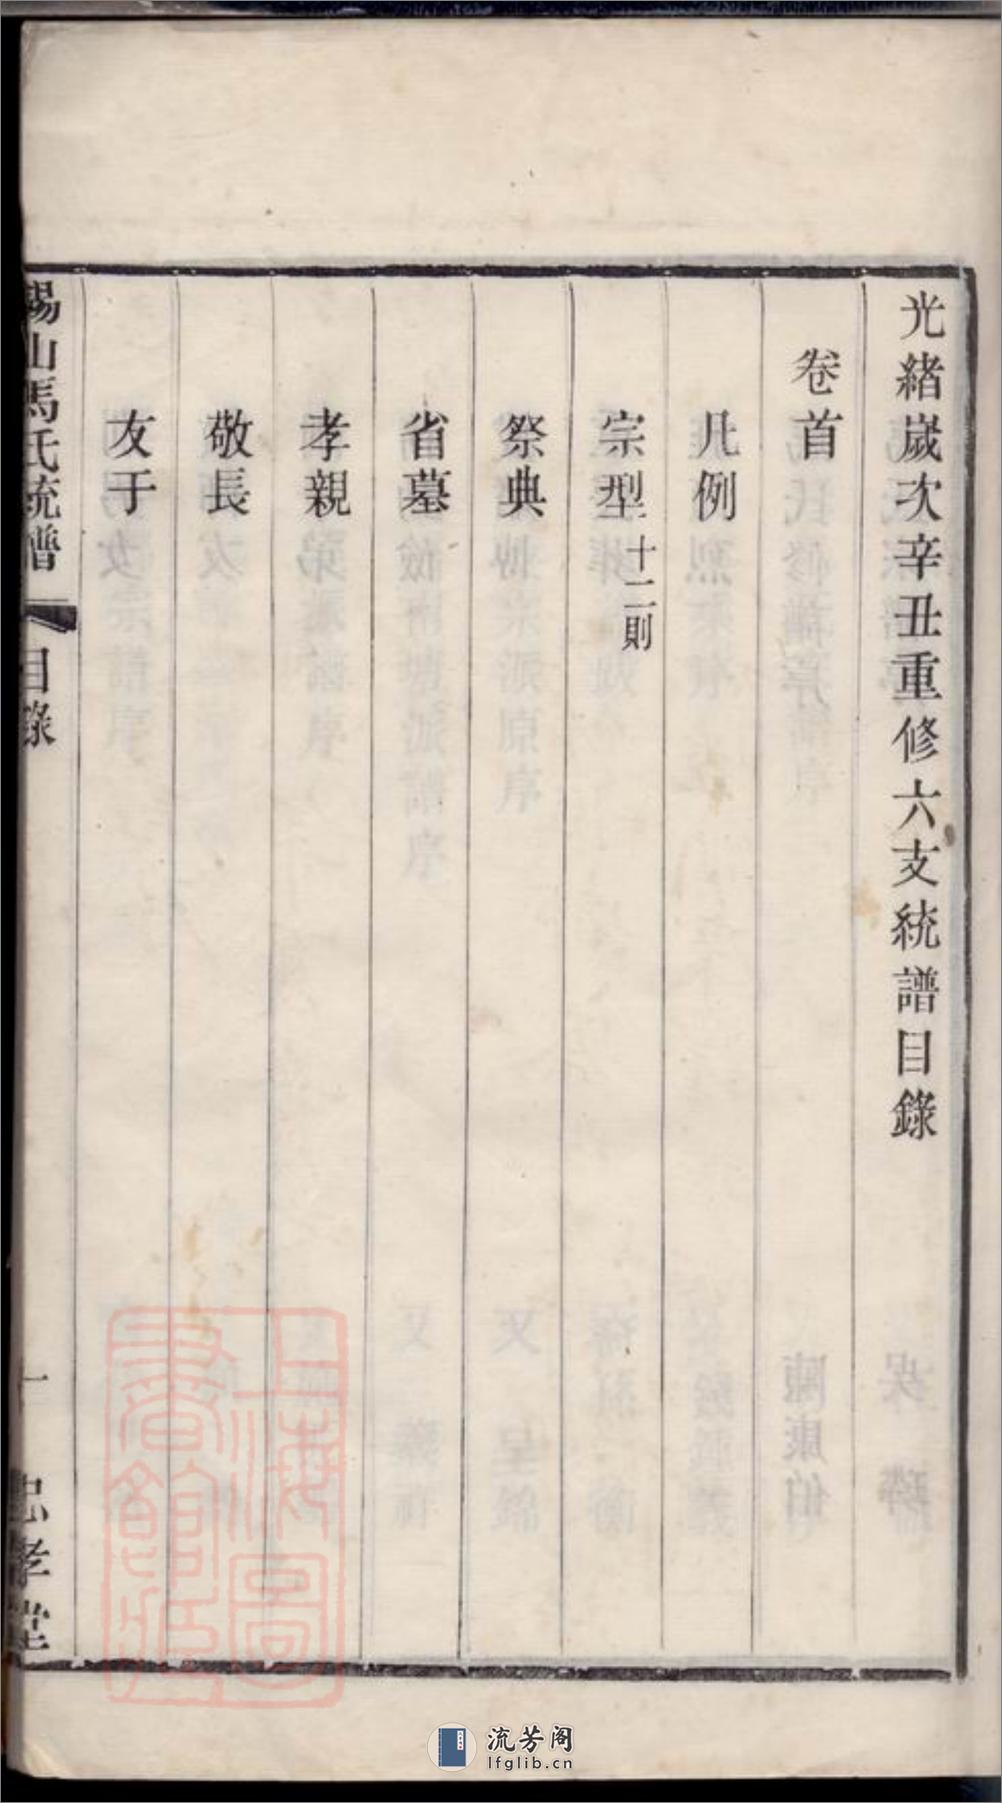 光緒歲次辛丑重修六支統譜目錄
卷首
凡例
宗型 十二則
祭典
省墓
孝親
敬長
友于
錫山馬氏統譜 目錄 一 忠孝堂
上海圖書館藏
流芳阁
lfglib.cn